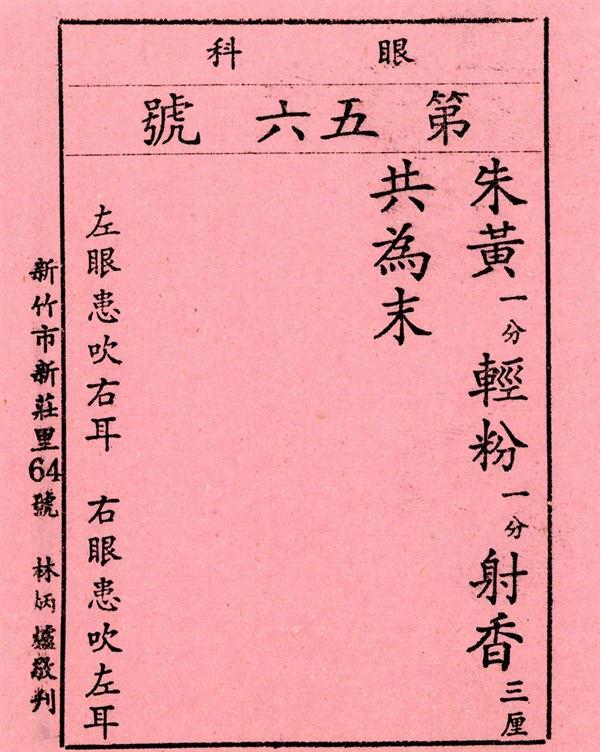 眼科
第五六號
朱黃一分輕粉一分射香三厘
共為末
左眼患吹右耳 右眼患吹左耳
新竹市新莊里64號 林炳爐敬刊